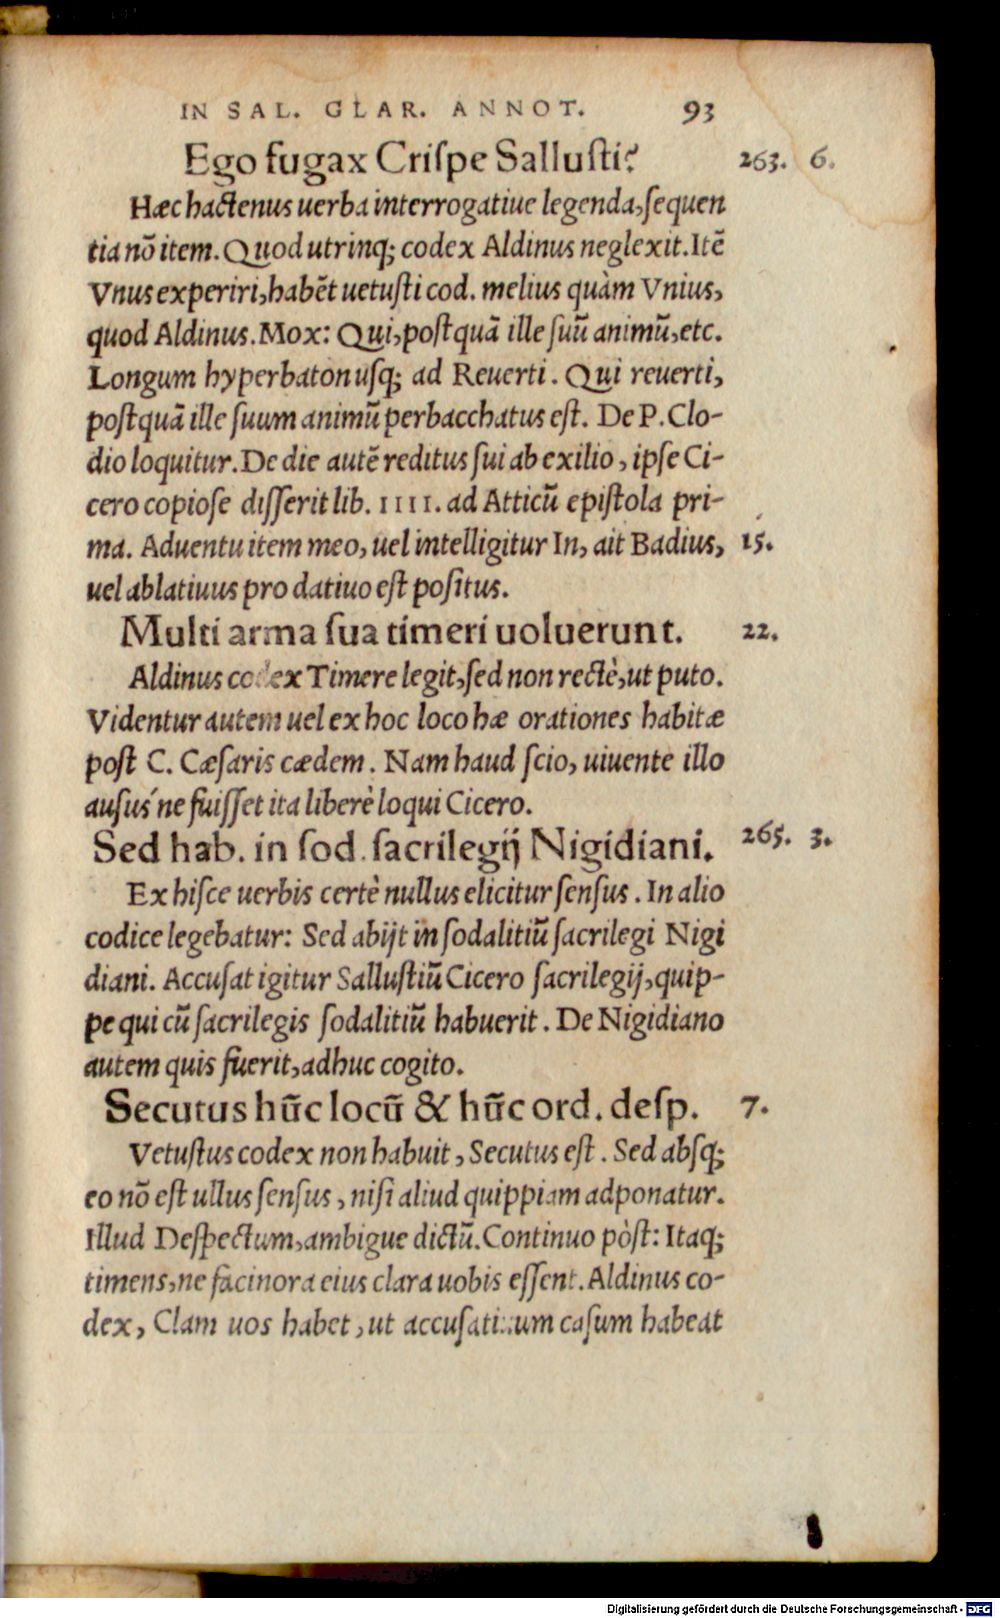 IN SAL. GLAR. ANNOT. 93
Ego fugax Criſpe Salluſti? 263. 6.
Hæc hactenus uerba interrogatiue legenda, ſequen
tia nō item. Quod utrinq; codex Aldinus neglexit. Itē
Vnus experiri, habēt uetuſti cod. melius quàm Vnius,
quod Aldinus. Mox: Qui, poſtquā ille ſuū animū, etc.
Longum hyperbaton uſq; ad Reuerti. Qui reuerti,
poſtquā ille ſuum animū perbacchatus eſt. De P. Clo-
dio loquitur. De die autē reditus ſui ab exilio, ipſe Ci-
cero copioſe diſſerit lib. IIII. ad Atticū epiſtola pri-
ma. Aduentu item meo, uel intelligitur In, ait Badius, 15.
uel ablatiuus pro datiuo eſt poſitus.
Multi arma ſua timeri uoluerunt. 22.
Aldinus codex Timere legit, ſed non rectè, ut puto.
Videntur autem uel ex hoc loco hæ orationes habitæ
poſt C. Cæſaris cædem. Nam haud ſcio, uiuente illo
auſus´ne fuiſſet ita liberè loqui Cicero.
Sed hab. in ſod. ſacrilegij Nigidiani. 265. 3.
Ex hiſce uerbis certè nullus elicitur ſenſus. In alio
codice legebatur: Sed abijt in ſodalitiū ſacrilegi Nigi
diani. Accuſat igitur Salluſtiū Cicero ſacrilegij, quip-
pe qui cū ſacrilegis ſodalitiū habuerit. De Nigidiano
autem quis fuerit, adhuc cogito.
Secutus hūc locū & hūc ord. deſp. 7.
Vetuſtus codex non habuit, Secutus eſt. Sed abſq;
eo nō eſt ullus ſenſus, niſi aliud quippiam adponatur.
Illud Deſpectum, ambigue dictū. Continuo pòſt: Itaq;
timens, ne facinora eius clara uobis eſſent. Aldinus co-
dex, Clam uos habet, ut accuſatiuum caſum habeat
Digitalisierung gefördert durch die Deutsche Forschungsgemeinschaft - DFG